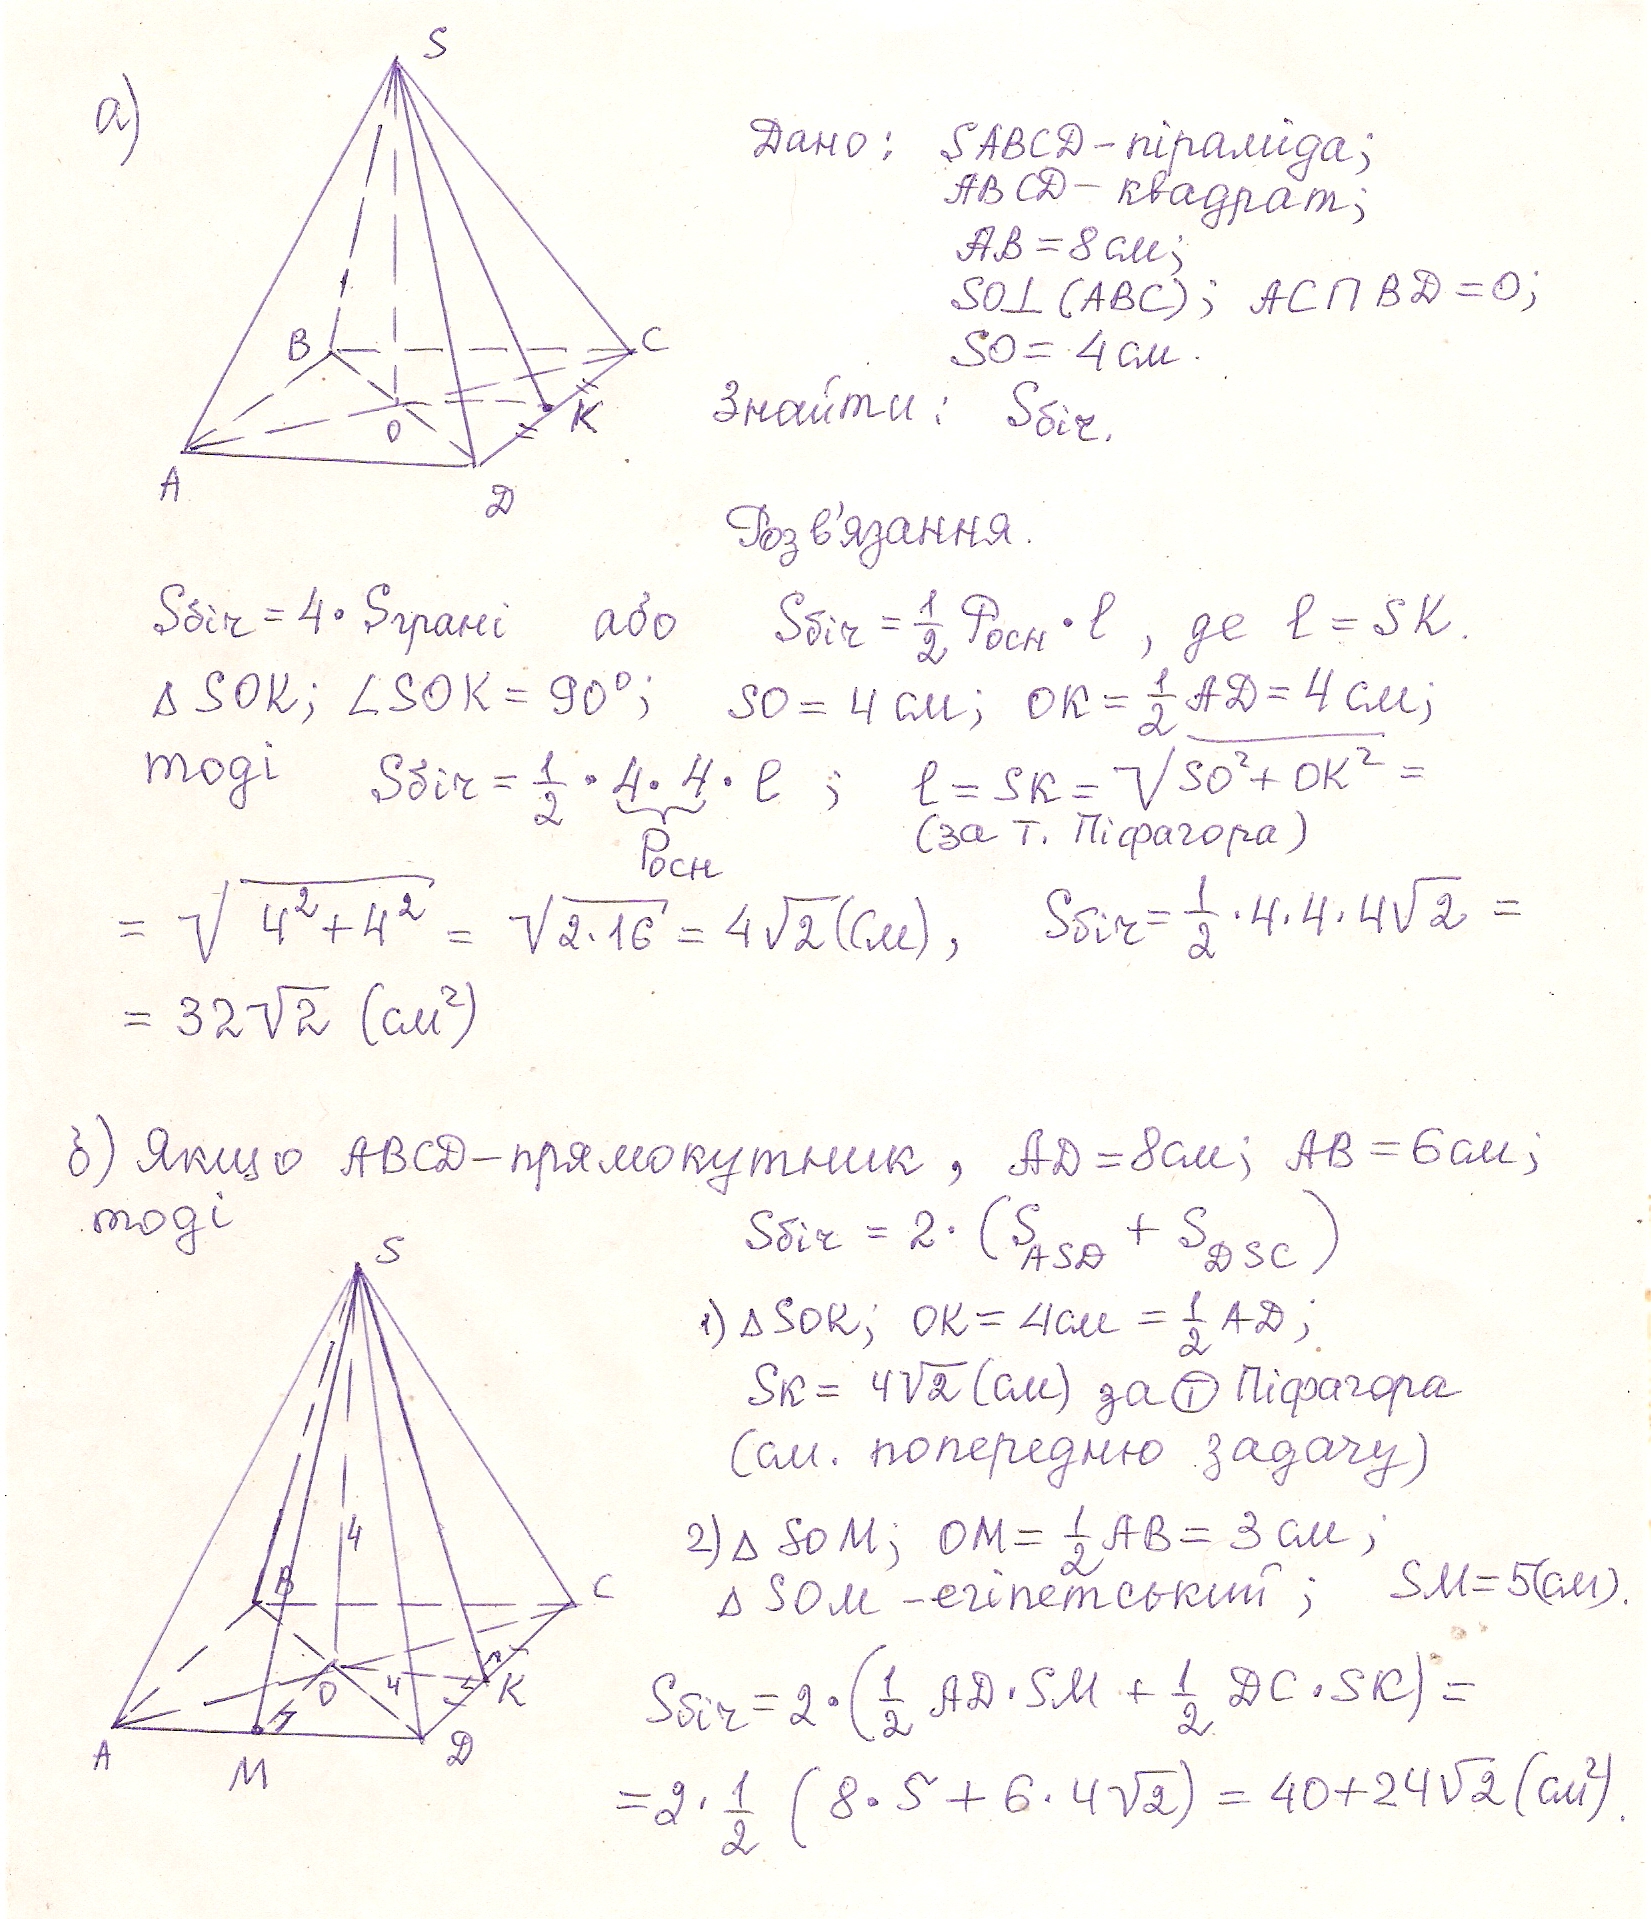 а)
S
B
C
O
K
A
D
Дано: SABCD - піраміда;
ABCD - квадрат;
AB = 8 см;
SO⊥(ABC); AC∩BD = O;
SO = 4 см.
Знайти: Sбіч.
Розв'язання.
Sбіч = 4 · Sграні або Sбіч = 1/2 Pосн · l, де l = SK.
Δ SOK; ∠SOK = 90°; SO = 4 см; OK = 1/2 AD = 4 см;
тоді Sбіч = 1/2 · 4 · 4 · l; l = SK = √(SO² + OK²) =
Pосн (за т. Піфагора)
= √(4² + 4²) = √(2·16) = 4√2 (см), Sбіч = 1/2 · 4 · 4 · 4√2 =
= 32√2 (см²)
б) Якщо ABCD - прямокутник, AD = 8 см; AB = 6 см;
тоді Sбіч = 2 · (S ASD + S DSC)
1) Δ SOK; OK = 4 см = 1/2 AD;
SK = 4√2 (см) за Т Піфагора
(см. попередню задачу)
2) Δ SOM; OM = 1/2 AB = 3 см;
Δ SOM - єгіпетський; SM = 5(см).
Sбіч = 2 · (1/2 AD · SM + 1/2 DC · SK) =
= 2 · 1/2 (8 · 5 + 6 · 4√2) = 40 + 24√2 (см²).
S
4
B
C
O
4
K
A
M
D